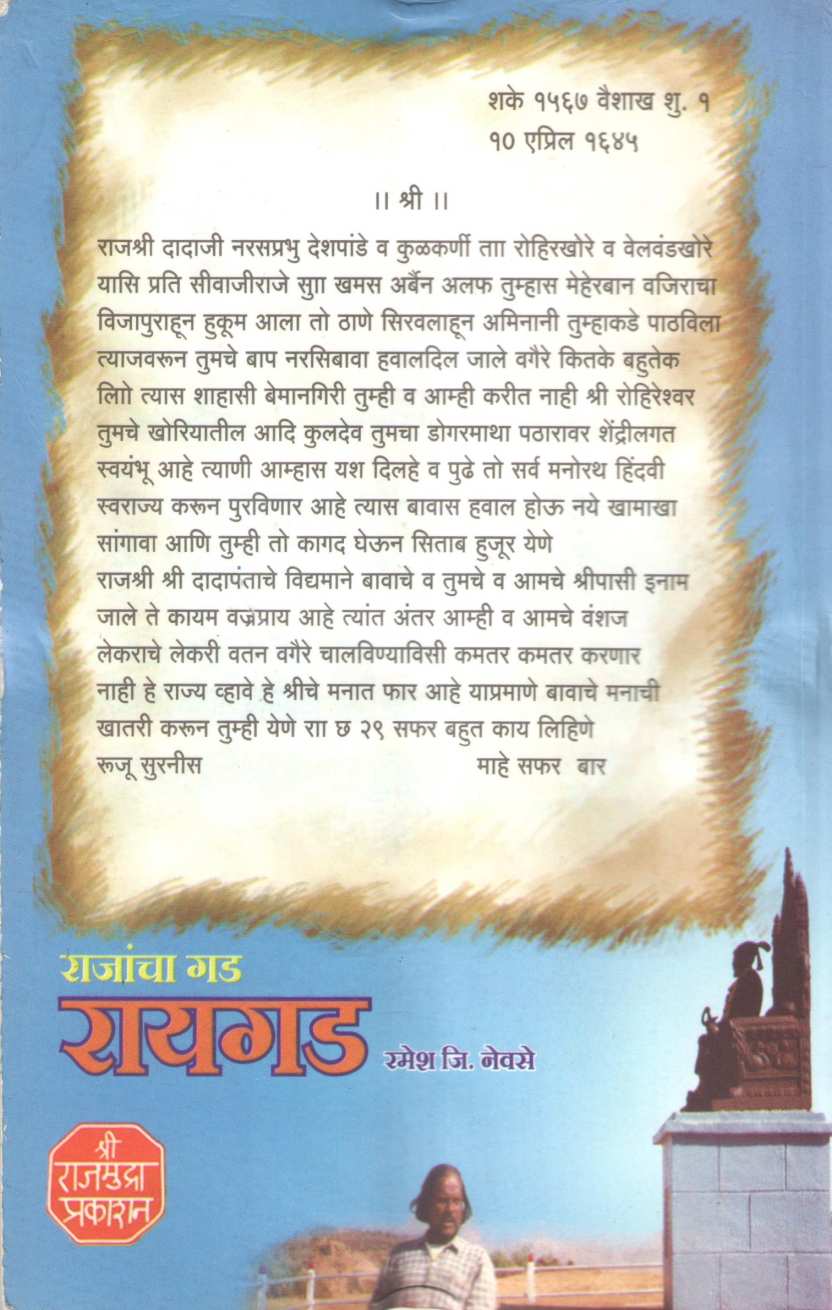 शके १५६७ वैशाख शु. १
१० एप्रिल १६४५
।। श्री ।।
राजश्री दादाजी नरसप्रभु देशपांडे व कुळकर्णी ताा रोहिरखोरे व वेलवंडखोरे
यासि प्रति सीवाजीराजे सुाा खमस अर्बैन अलफ तुम्हास मेहेरबान वजिराचा
विजापुराहून हुकूम आला तो ठाणे सिरवलाहून अमिनानी तुम्हाकडे पाठविला
त्याजवरून तुमचे बाप नरसिबावा हवालदिल जाले वगैरे कितके बहुतेक
लिाो त्यास शाहासी बेमानगिरी तुम्ही व आम्ही करीत नाही श्री रोहिरेश्वर
तुमचे खोरियातील आदि कुलदेव तुमचा डोगरमाथा पठारावर शेंद्रीलगत
स्वयंभू आहे त्याणी आम्हास यश दिलहे व पुढे तो सर्व मनोरथ हिंदवी
स्वराज्य करून पुरविणार आहे त्यास बावास हवाल होऊ नये खामाखा
सांगावा आणि तुम्ही तो कागद घेऊन सिताब हुजूर येणे
राजश्री श्री दादापंताचे विद्यमाने बावाचे व तुमचे व आमचे श्रीपासी इनाम
जाले ते कायम वज्रप्राय आहे त्यांत अंतर आम्ही व आमचे वंशज
लेकराचे लेकरी वतन वगैरे चालविण्याविसी कमतर कमतर करणार
नाही हे राज्य व्हावे हे श्रीचे मनात फार आहे याप्रमाणे बावाचे मनाची
खातरी करून तुम्ही येणे राा छ २९ सफर बहुत काय लिहिणे
रूजू सुरनीस माहे सफर बार
राजांचा गड
रायगड
रमेश जि. नेवसे
श्री
राजमुद्रा
प्रकाशन